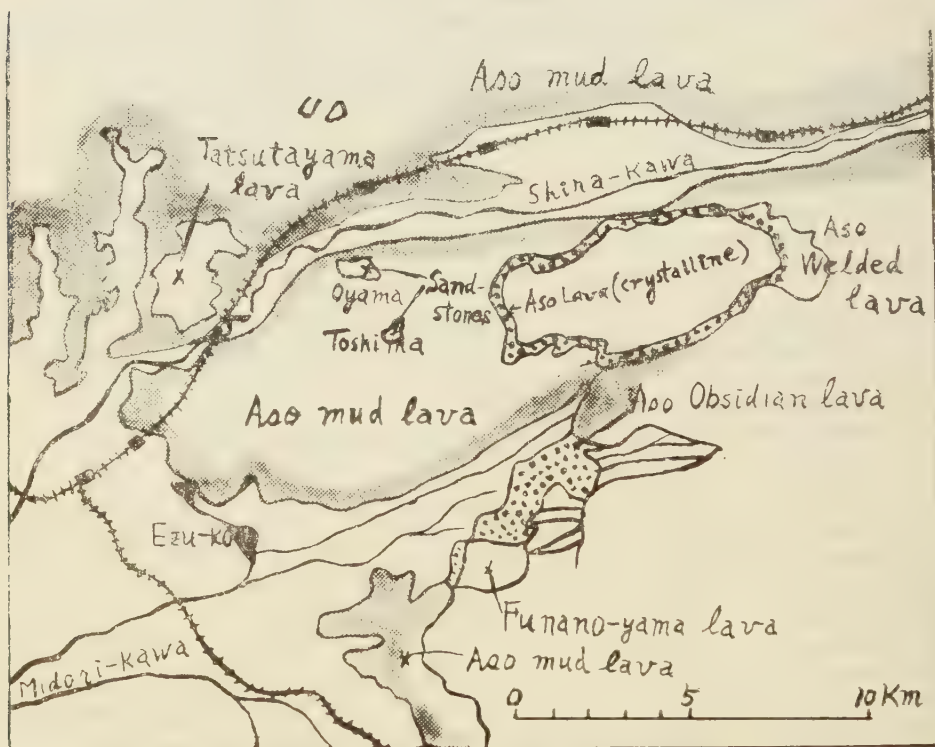 Aso mud lava
Tatsutayama
lava
Shira-Kawa
Aso
Welded
lava
Oyama
Sand-
stones
Aso Lava (crystalline)
Toshima
Aso mud lava
Aso Obsidian lava
Ezu-ko
Funano-yama lava
Aso mud lava
Midori-Kawa
0 5 10 Km